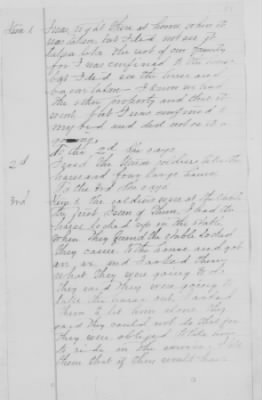 Item 1 I was right there at home when it
was taken but I did not see it
taken like the rest of our family
for I was confined to the house
but I did see the horse and
taken I know we had
the other property and that it
went but I was confined to
my bed and did not see it
going
To the 2nd she says
2d I saw the Union soldiers take the
horse and four large hams
To the 3rd she says
3rd the soldiers were at the stable
the first I seen of them, I had the
horse locked up in the stable
when they found the stable locked
they came to the house and got
an ax and I asked them
what they were going to do
they said they were going to
take the horse out I asked
them to let him alone they
said they could not do that for
they were obliged to take him
to ride in the service I
them that if they would